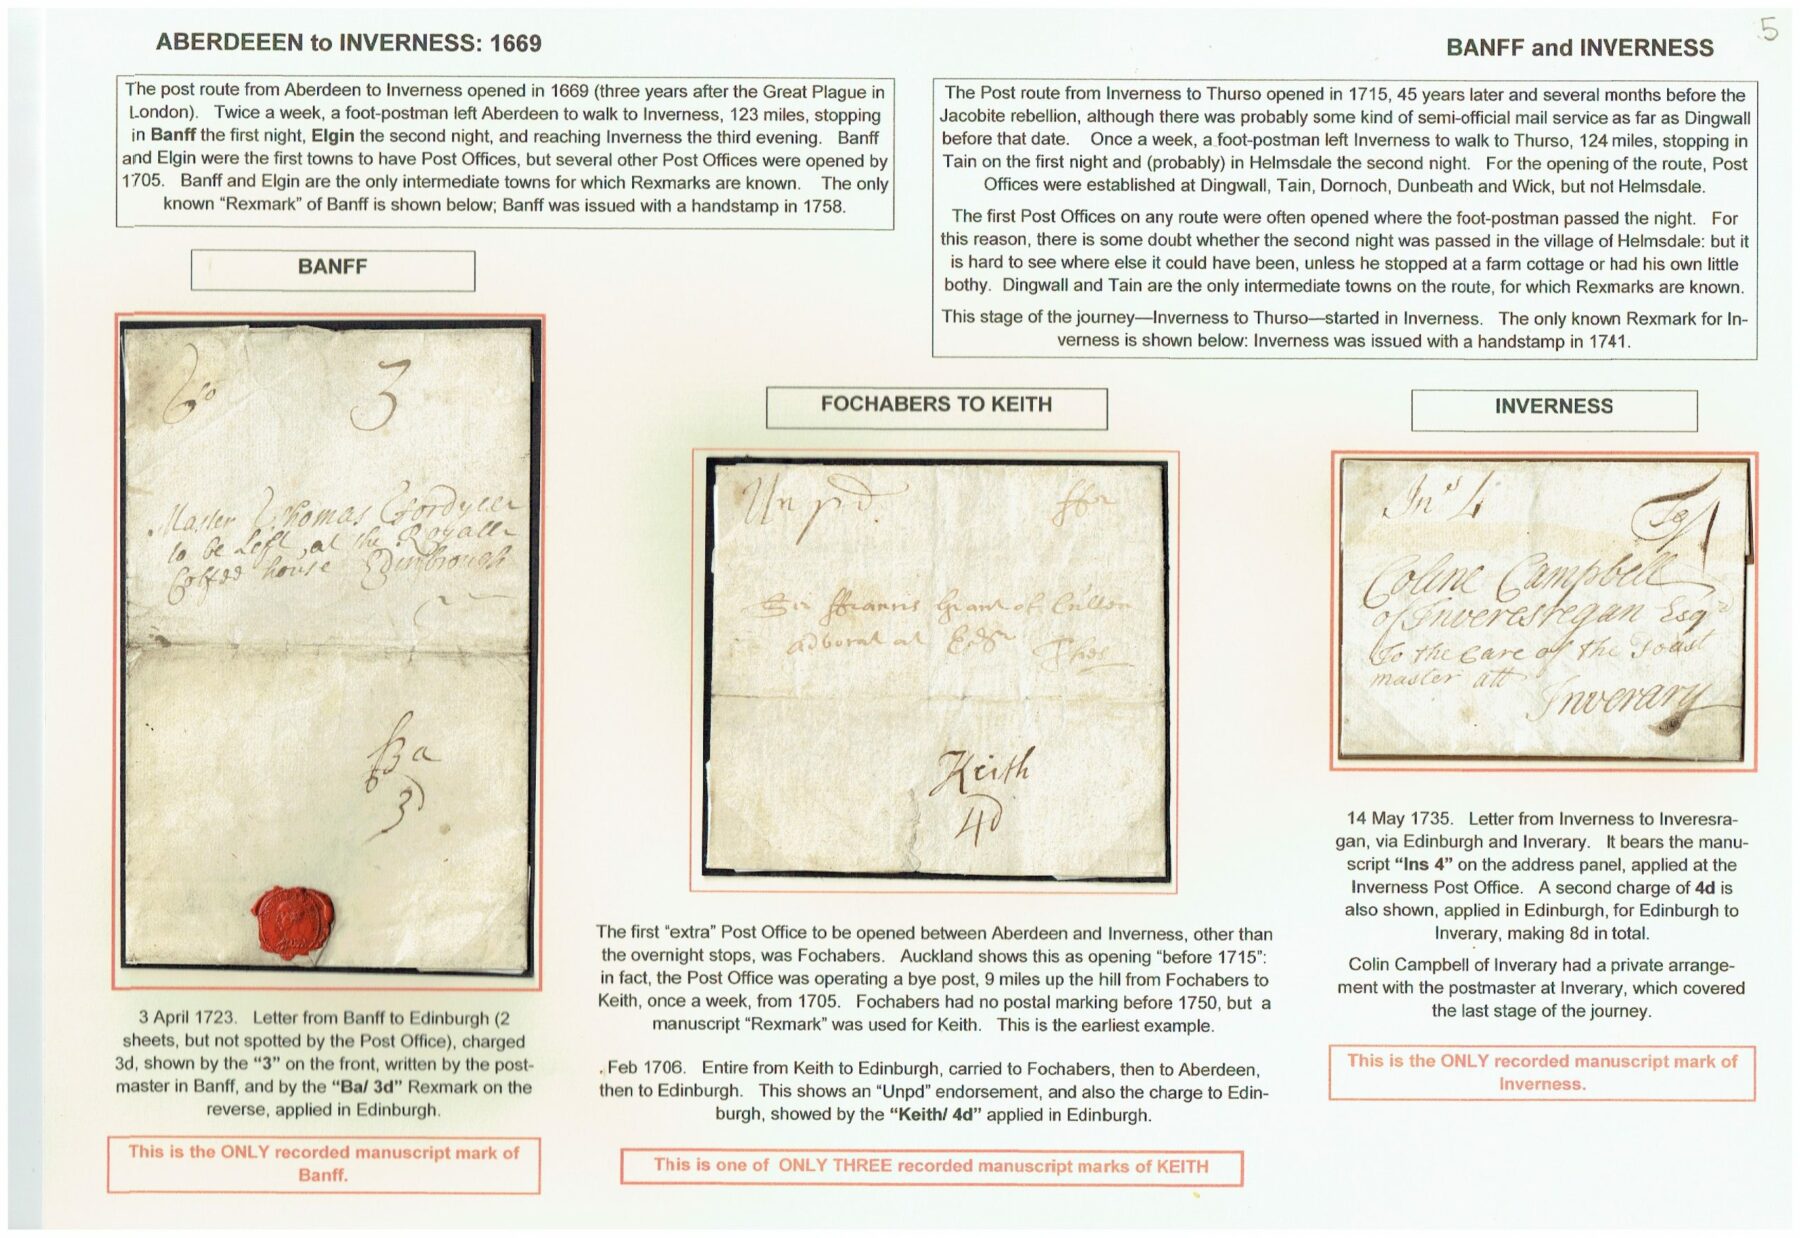 5
ABERDEEEN to INVERNESS: 1669
BANFF and INVERNESS
The post route from Aberdeen to Inverness opened in 1669 (three years after the Great Plague in
London). Twice a week, a foot-postman left Aberdeen to walk to Inverness, 123 miles, stopping
in Banff the first night, Elgin the second night, and reaching Inverness the third evening. Banff
and Elgin were the first towns to have Post Offices, but several other Post Offices were opened by
1705. Banff and Elgin are the only intermediate towns for which Rexmarks are known. The only
known “Rexmark” of Banff is shown below; Banff was issued with a handstamp in 1758.
The Post route from Inverness to Thurso opened in 1715, 45 years later and several months before the
Jacobite rebellion, although there was probably some kind of semi-official mail service as far as Dingwall
before that date. Once a week, a foot-postman left Inverness to walk to Thurso, 124 miles, stopping in
Tain on the first night and (probably) in Helmsdale the second night. For the opening of the route, Post
Offices were established at Dingwall, Tain, Dornoch, Dunbeath and Wick, but not Helmsdale.
The first Post Offices on any route were often opened where the foot-postman passed the night. For
this reason, there is some doubt whether the second night was passed in the village of Helmsdale: but it
is hard to see where else it could have been, unless he stopped at a farm cottage or had his own little
bothy. Dingwall and Tain are the only intermediate towns on the route, for which Rexmarks are known.
This stage of the journey—Inverness to Thurso—started in Inverness. The only known Rexmark for In-
verness is shown below: Inverness was issued with a handstamp in 1741.
BANFF
3
Master Thomas
to be Left at the Royall
house Edinbrough
Ba
3d
3 April 1723. Letter from Banff to Edinburgh (2
sheets, but not spotted by the Post Office), charged
3d, shown by the “3” on the front, written by the post-
master in Banff, and by the “Ba/ 3d” Rexmark on the
reverse, applied in Edinburgh.
This is the ONLY recorded manuscript mark of
Banff.
FOCHABERS TO KEITH
Unpd
Sir ffrancis Grant of Cullen
advocat at Edr
Keith
4d
The first “extra” Post Office to be opened between Aberdeen and Inverness, other than
the overnight stops, was Fochabers. Auckland shows this as opening “before 1715”:
in fact, the Post Office was operating a bye post, 9 miles up the hill from Fochabers to
Keith, once a week, from 1705. Fochabers had no postal marking before 1750, but a
manuscript “Rexmark” was used for Keith. This is the earliest example.
. Feb 1706. Entire from Keith to Edinburgh, carried to Fochabers, then to Aberdeen,
then to Edinburgh. This shows an “Unpd” endorsement, and also the charge to Edin-
burgh, showed by the “Keith/ 4d” applied in Edinburgh.
This is one of ONLY THREE recorded manuscript marks of KEITH
INVERNESS
Ins 4
To
Coline Campbell
of Inveresregan Esqr
To the care of the
master att
Inverary
14 May 1735. Letter from Inverness to Inveresra-
gan, via Edinburgh and Inverary. It bears the manu-
script “Ins 4” on the address panel, applied at the
Inverness Post Office. A second charge of 4d is
also shown, applied in Edinburgh, for Edinburgh to
Inverary, making 8d in total.
Colin Campbell of Inverary had a private arrange-
ment with the postmaster at Inverary, which covered
the last stage of the journey.
This is the ONLY recorded manuscript mark of
Inverness.